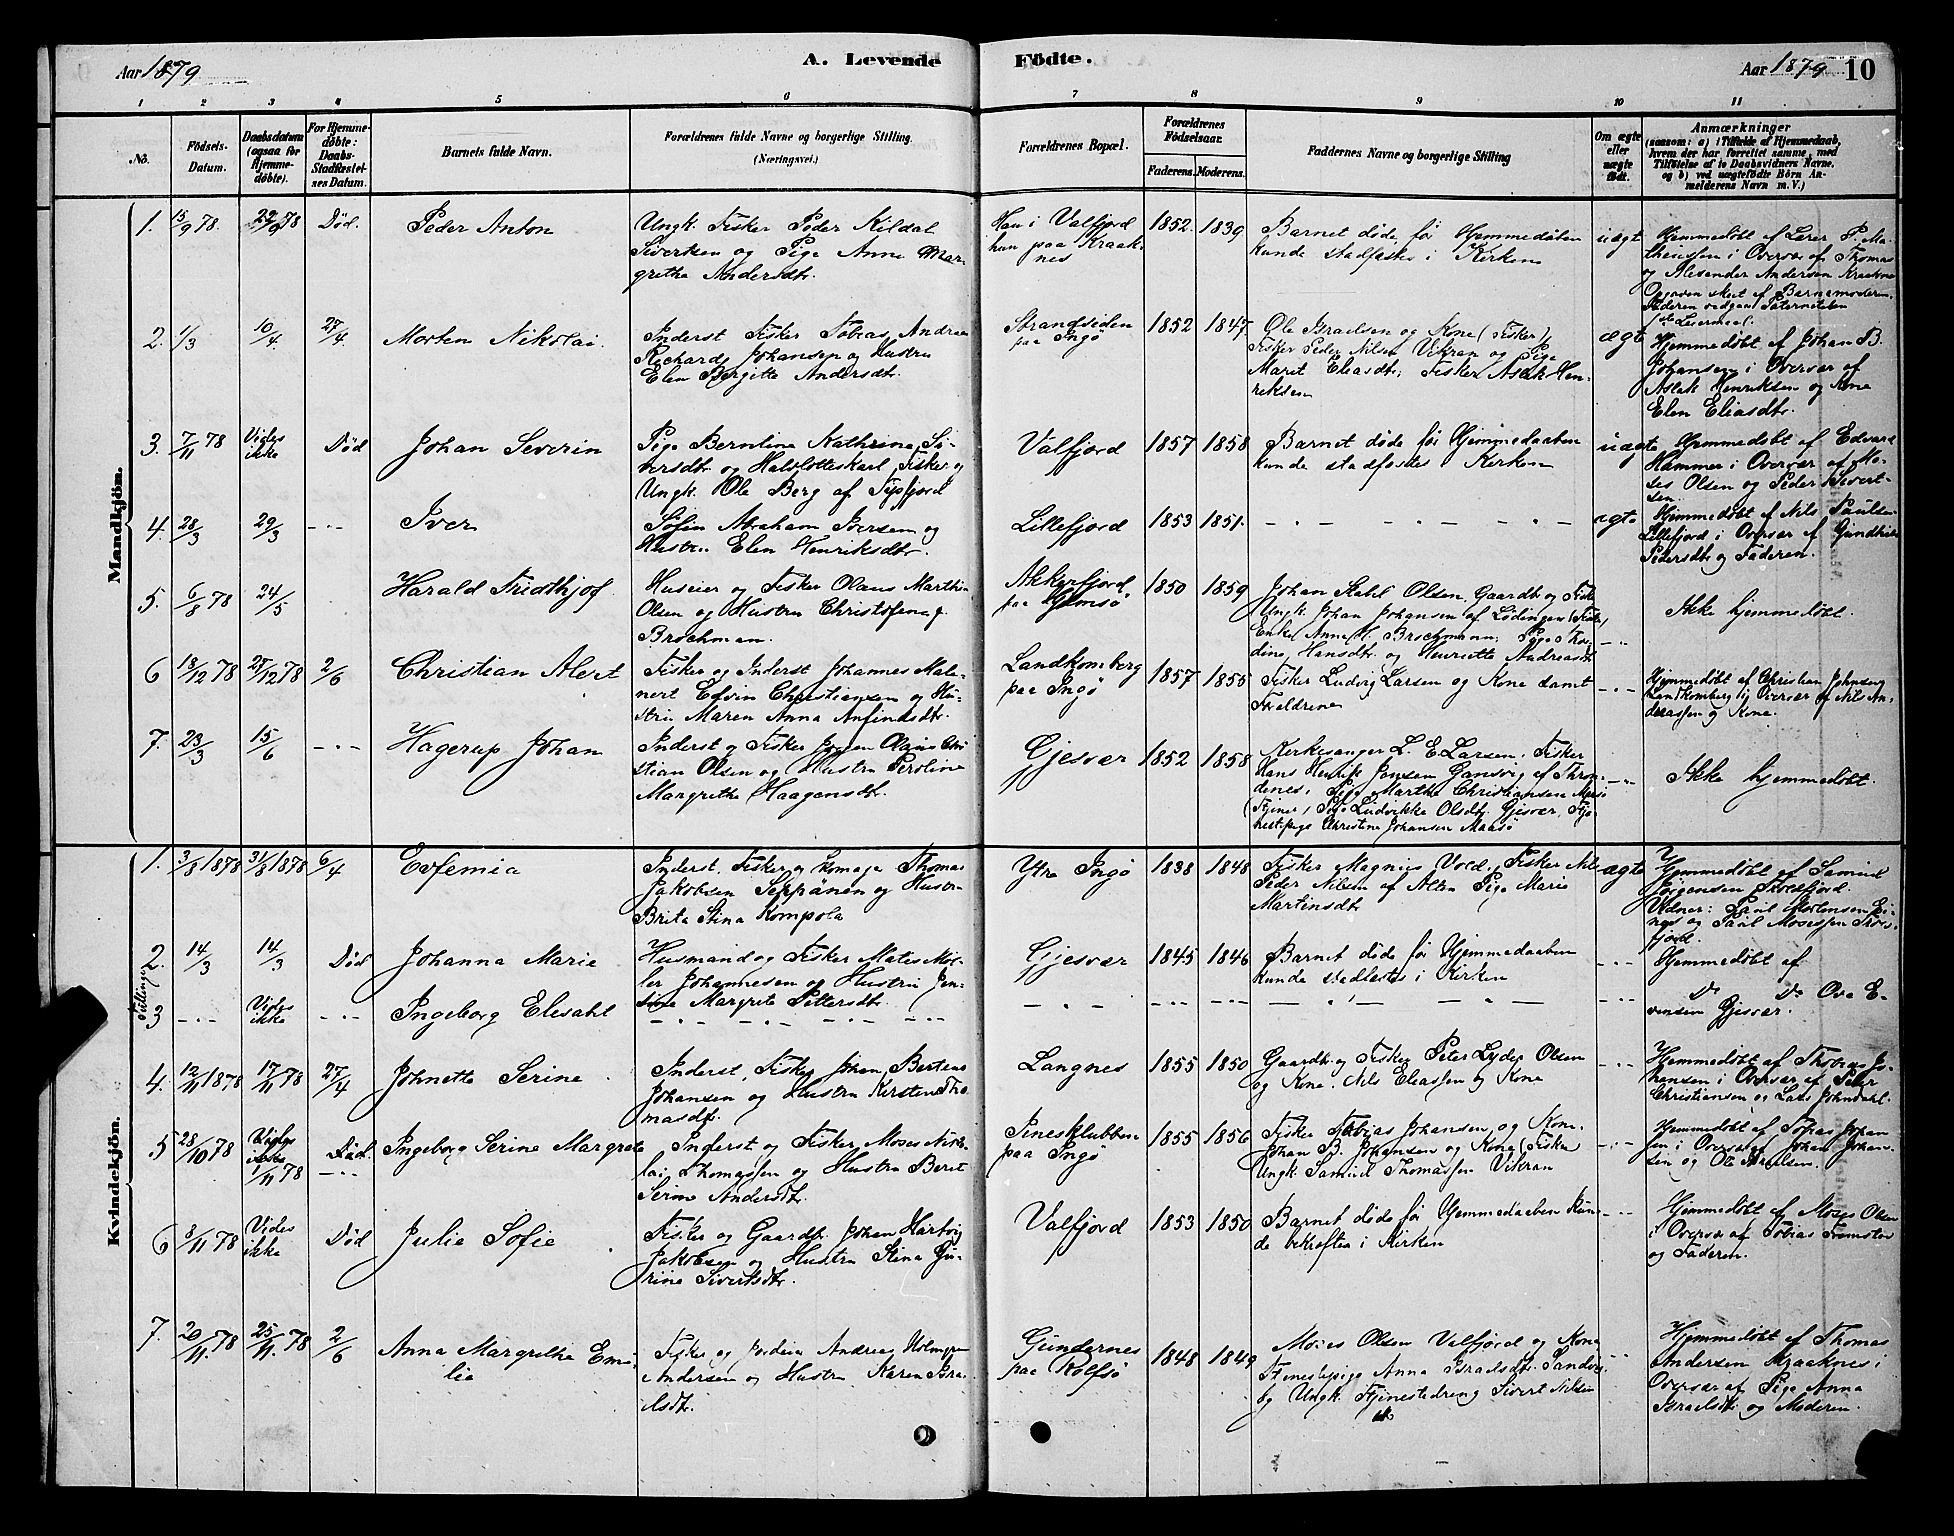 Aar 1879
A. Levende
Födte.
Aar 1879
10
1 2 3 4 5 6 7 8 9 10 11
No.
Födsels-
Datum.
Daabsdatum
(ogsaa for
Hjemme-
döbte).
For Hjemme-
döbte:
Daabs-
Stadfæstel-
ses Datum.
Barnets fulde Navn.
Forældrenes fulde Navne og borgerlige Stilling.
(Næringsvei.)
Forældrenes Bopæl.
Forældrenes
Födselsaar.
Faderens. Moderens.
Faddernes Navne og borgerlige Stilling
Om ægte
eller
uægte
født.
Anmærkninger
(saasom: a) i Tilfælde af Hjemmedaab,
hvem der har forrettet samme, med
Tilföielse af to Daabsvidners Navne.
og b) ved uægtefödte Börn An-
melderens Navn m. V.)
Mandkjön.
1. 15/9 78. 22/9 78 Död. Peder Anton
Ungk. Fisker Peder Kildal
Sivertsen og Pige Anne Mar-
grethe Andersdtr.
Han i Valfjord
hun paa Kraak-
nes
1852. 1839
Barnet døde før Hjemmedaaben
kunde stadfæstes i Kirken
uægt
Hjemmedöbt af Lærer P. Ma-
theussen i Overvær af Thomas
og Alexander Andersen Kraaknes
Opgaven skeet af Barnemoderen,
Faderen vedgaar Paterniteten
2. 1/3 10/4 27/4 Morten Nikolai
Inderst Fisker Tobias Andreas
Richard Johansen og Hustru
Elen Bergitte Andersdtr.
Strandsiden
paa Ingö
1852 1847
Ole Israelsen og Kone (Fisker),
Fisker Peder Nilsen Vikran og Pige
Marit Eliasdtr, Fisker Aslak Hen-
riksen
ægte
Hjemmedöbt af Johan B.
Johansen i Overvær af
Aslak Henriksen og Kone
Elen Eliasdtr.
3. 7/11 78 Vides
ikke Död Johan Severin
Pige Berntine Kathrina Si-
versdtr og Halvlotteskarl, Fisker og
Ungk. Ole Berg af Fipfjord
Valfjord 1857 1858
Barnet døde før Hjemmedaaben
kunde stadfæstes i Kirken
uægte
Hjemmedöbt af Edvard
Hammer i Overvær af Mo-
ses Olsen og Peder Sivert-
sen.
4. 28/3 29/3 - " - Iver
Søfin Abraham Iversen og
Hustru Elen Henriksdtr.
Lillefjord 1853 1851.
- " - " - " - " -
ægte
Hjemmedöbt af Nils Paulsen
Lillefjord i Overvær af Gundhild
Pedersdtr og Faderen.
5. 6/8 78 24/5 Harald Fridthjof
Huseier og Fisker Olaus Marthin
Olsen og Hustru Christofena f.
Brochman.
Akkerfjord
paa Hjemsö
1850 1859
Johan Stabel Olsen, Gaardb. og Fisk
Ungk. Johan Johansen af Lødingen (Fisker)
Enke Anne M. Brochmann, Pige Tho-
dine Hansdtr. og Henriette Andreasdtr
- " -
Ikke hjemmedöbt.
6 18/12 78 27/12 78 2/6 Christian Alert
Fisker og Inderst Johannes Male-
nert Edvin Christiansen og Hu-
stru Maren Anna Anfindsdtr.
Landkomberg
paa Ingö
1857 1855
Fisker Ludvig Larsen og Kone samt
Forældrene
- " -
Hjemmedöbt af Christian Johnsen
Landkomberg i Overvær af Nils An-
dreassen og Kone.
7. 23/3 15/6 - " - Hagerup Johan
Inderst og Fisker Jørgen Olaus Chri-
stian Olsen og Hustru Peroline
Margrethe Haagensdtr.
Gjesvær 1852 1858
Kirkesanger L. E. Larsen, Fisker
Hans Henrik Jansen Gansvig af Thron-
denes, Pige Marthe Christiansen Maasö
(Tjener), Pige Ludvikke Olsdtr. Gjesvær, Tje-
nestepige Christine Johansen Maasö
- " -
Ikke hjemmedöbt.
Kvindekjön.
1. 3/8 1878 31/8 1878 6/4 Eufemia
Inderst, Fisker og Skomager Thomas
Jakobsen Seppänen og Hustru
Brita Stina Kompola
Ytre Ingö 1838 1848
Fisker Magnus Vord, Fisker Nils
Peder Nilsen af Alten Pige Marie
Martinsdtr
ægte
Hjemmedöbt af Samuel
Jørgensen Troldfjord.
Vidner: Paul Mortensen
og Paul Mosessen Trold-
fjord.
Tvillinger
2. 14/3 14/3 Död Johanna Marie
Husmand og Fisker Mates Møl-
ler Johannesen og Hustru Jen-
sine Margrete Pettersdtr.
Gjesvær 1845 1846
Barnet døde før Hjemmedaaben
kunde stadfæstes i Kirken
- " -
Hjemmedöbt af
3 - " - Vides
ikke - " - Ingeborg Elesabt
- " - " - " -
- " - - " - - " - - " -
Do Do Ove E-
vensen Gjesvær.
4. 12/11 1878 17/11 78 27/4 Johnette Serine
Inderst, Fisker Johan Bertens
Johansen og Hustru Kirsten Tho-
masdtr.
Langnes 1855 1850
Gaardb. og Fisker Peter Lyder Olsen
og Kone. Nils Eliassen og Kone
- " -
Hjemmedöbt af Thobias Jo-
hansen i Overvær af Peter
Christiansen og Lars Johndahl.
5 28/10 78 Vides
ikke
1/11 78 Död.
- " - Ingeborg Serine Margrete
Inderst og Fisker Moses Niko-
lai Thomassen og Hustru Beret
Serine Andersdtr.
Finesklubben
paa Ingö
1855 1856
Fisker Tobias Johansen og Kone,
Johan B. Johansen og Kone (Fisker
Ungk. Samuel Thomassen Vikran
- " -
Hjemmedöbt af Tobias Johan-
sen i Overvær af Johan Johan-
sen og Ole Israelsen.
6 8/11 78 Vides
ikke Död Julie Sofie
Fisker og Gaardb. Johan Hartvig
Jakobsen og Hustru Stina Gu-
rine Sivertsdtr.
Valfjord 1853 1850
Barnet døde før Hjemmedaaben kun-
de bekræftes i Kirken
- " -
Hjemmedöbt af Moses Olsen
i Overvær af Tobias
og Faderen.
7. 20/11 78 25/11 78 2/6 Anna Margrethe Emi-
lie
Fisker og Jordeier Andreas Holmgren
Andersen og Hustru Karen Isra-
elsdtr.
Gundernes
paa Rolfsö
1848 1849
Moses Olsen Valfjord og Kone
Tjenestepige Anna Israelsdtr.
og Ungk. Tjenestedreng Sivert Nilsen
- " -
Hjemmedöbt af Thomas
Andersen Kraaknes i
Overvær af Pige Anna
Israelsdtr og Moderen.